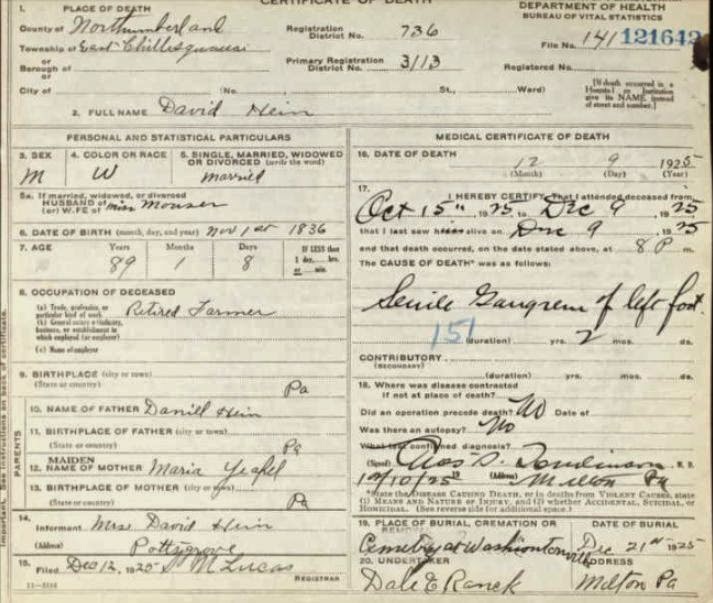 CERTIFICATE OF DEATH
1. PLACE OF DEATH
DEPARTMENT OF HEALTH
BUREAU OF VITAL STATISTICS
County of Northumberland
Registration District No. 736
File No. 141 121642
Township of East Chillisquaque
or
Borough of
Primary Registration District No. 3113
Registered No.
or
City of (No. St., Ward)
[If death occurred in a Hospital or Institution give its NAME instead of street and number.]
2. FULL NAME David Hein
PERSONAL AND STATISTICAL PARTICULARS
3. SEX M
4. COLOR OR RACE W
5. SINGLE, MARRIED, WIDOWED OR DIVORCED (write the word) Married
5a. If married, widowed, or divorced
HUSBAND of
(or) WIFE of Miss Mouser
6. DATE OF BIRTH (month, day, and year) Nov 1st 1836
7. AGE Years 89 Months 1 Days 8 If LESS than 1 day, hrs. or min.
8. OCCUPATION OF DECEASED
(a) Trade, profession, or particular kind of work Retired Farmer
(b) General nature of industry, business, or establishment in which employed (or employer)
(c) Name of employer
9. BIRTHPLACE (city or town)
(State or country) Pa
PARENTS
10. NAME OF FATHER Daniel Hein
11. BIRTHPLACE OF FATHER (city or town)
(State or country) Pa
12. MAIDEN NAME OF MOTHER Maria
13. BIRTHPLACE OF MOTHER (city or town)
(State or country) Pa
14. Informant Mrs David Hein
(Address) Pottsgrove
15. Filed Dec 12, 1925 S M Lucas
REGISTRAR
MEDICAL CERTIFICATE OF DEATH
16. DATE OF DEATH
12 9 1925
(Month) (Day) (Year)
17. I HEREBY CERTIFY, That I attended deceased from
Oct 15th, 1925 to Dec 9, 1925
that I last saw him alive on Dec 9, 1925
and that death occurred, on the date stated above, at 8 P m.
The CAUSE OF DEATH* was as follows:
Senile Gangrene of left foot
151 (duration) yrs. 2 mos. ds.
CONTRIBUTORY
(SECONDARY)
(duration) yrs. mos. ds.
18. Where was disease contracted
if not at place of death?
Did an operation precede death? No Date of
Was there an autopsy? No
What test confirmed diagnosis?
(Signed) Tomlinson, M. D.
12/10/25 19 (Address) Milton Pa
*State the DISEASE CAUSING DEATH, or in deaths from VIOLENT CAUSES, state (1) MEANS AND NATURE OF INJURY, and (2) whether ACCIDENTAL, SUICIDAL, or HOMICIDAL. (See reverse side for additional space.)
19. PLACE OF BURIAL, CREMATION OR REMOVAL
Cemetery at Washiontonville
DATE OF BURIAL
Dec 21st 1925
20. UNDERTAKER
Dale E Ranck
ADDRESS
Milton Pa
Important. See instructions on back of certificate.